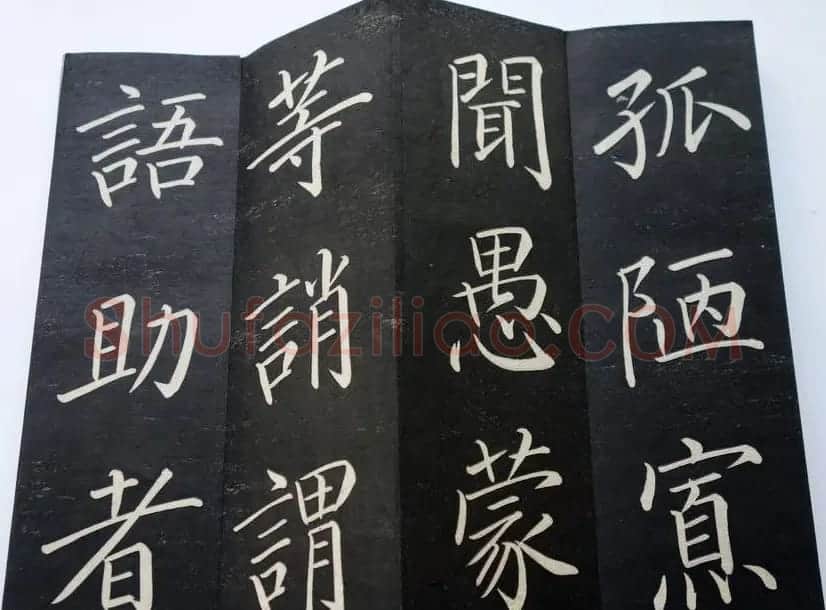 孤陋寡
聞愚蒙
等誚謂
語助者
Shufaziliao.COM